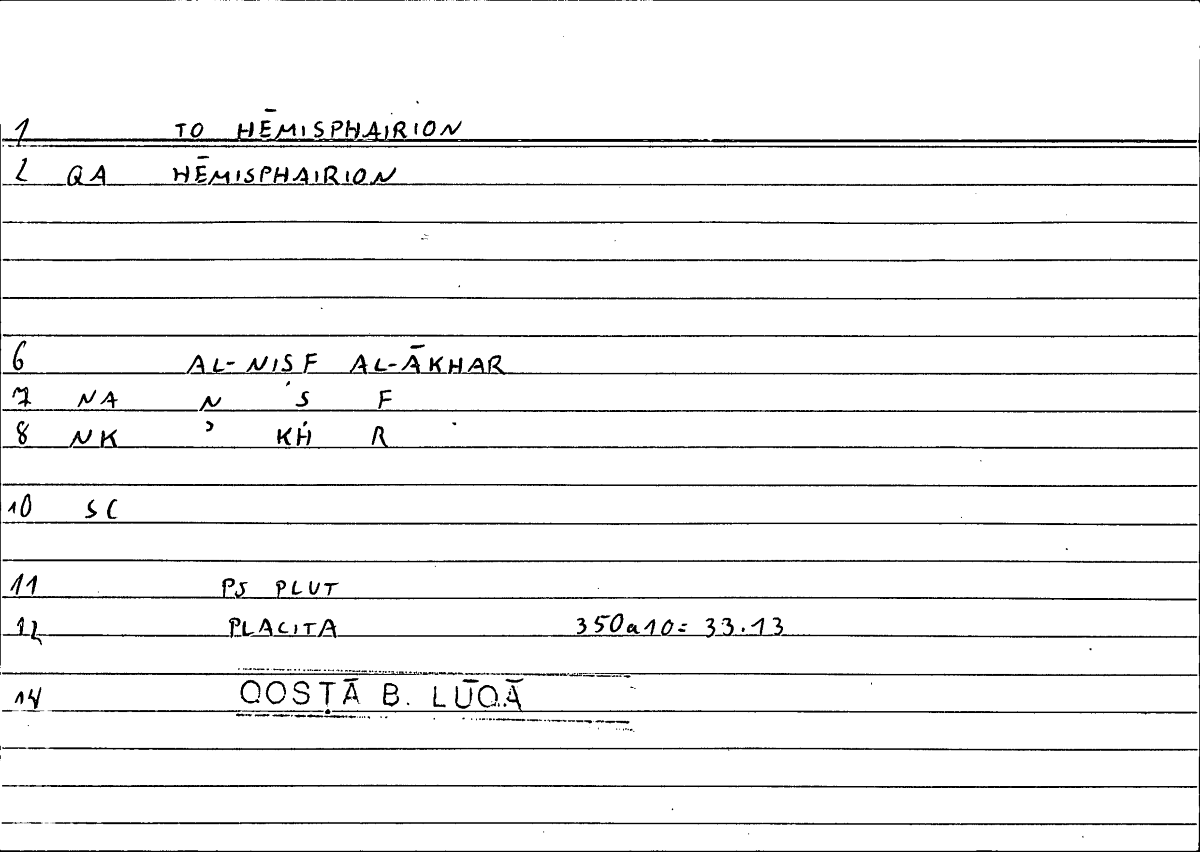 1 TO HĒMISPHAIRION
2 QA HĒMISPHAIRION
6 AL-NISF AL-ĀKHAR
7 NA N Ṣ F
8 NK ʾ KH R
10 SC
11 PS PLUT
12 PLACITA 350a10= 33.13
14 QOSṬĀ B. LŪQĀ